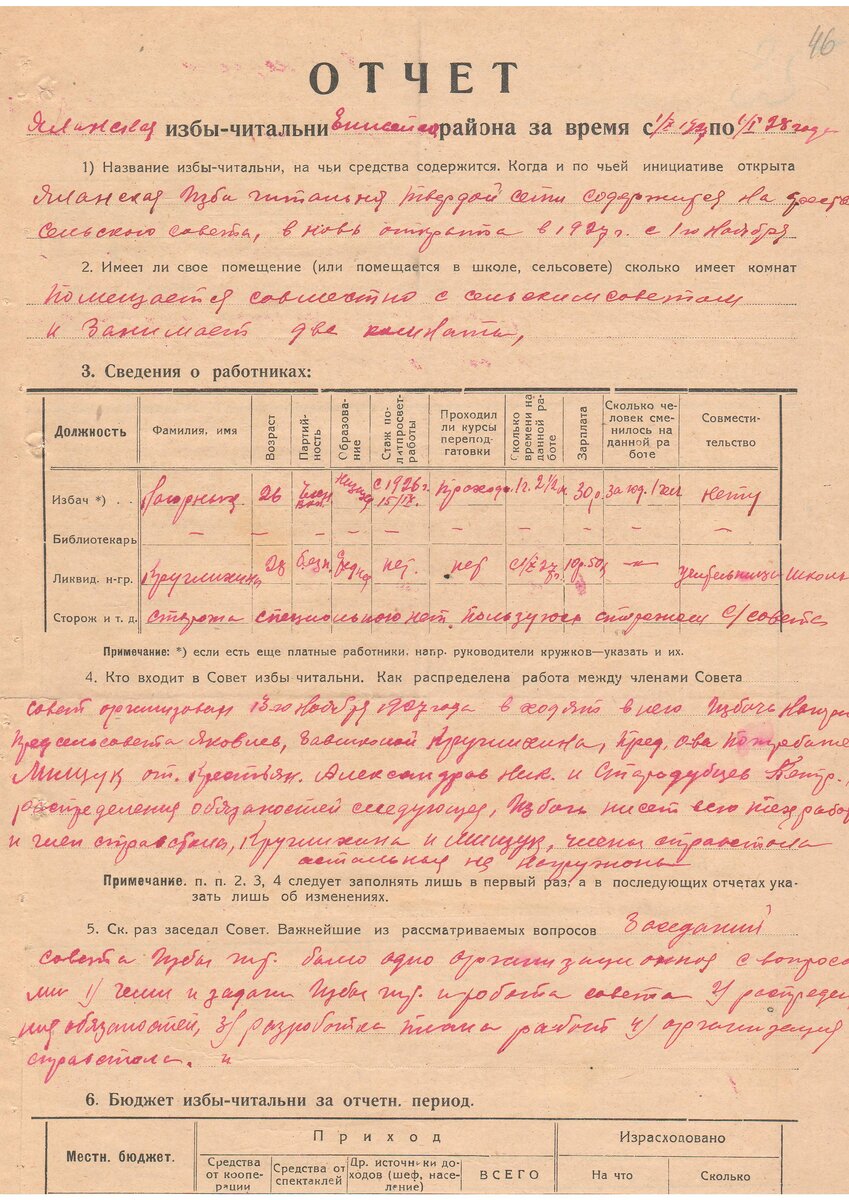 46
ОТЧЕТ
Яланская избы-читальни Енисейск района за время с 1/X 1927 по 1/I 28 года
1) Название избы-читальни, на чьи средства содержится. Когда и по чьей инициативе открыта
Яланская Изба читальня твердой сети содержится на
сельского совета, в новь открыта в 1927 г. с 1го Ноября
2. Имеет ли свое помещение (или помещается в школе, сельсовете) сколько имеет комнат
помещается совместно с сельским советом
и Занимает две комнаты,
3. Сведения о работниках:
Должность Фамилия, имя Возраст Партийность Образование Стаж политпросвет работы Проходил ли курсы переподготовки Сколько времени на данной работе Зарплата Сколько человек сменилось на данной работе Совместительство
Избач *) . . 26 с 1926 г. 15/IX. 1 г. 2 1/2 м. 30 р. за год. 1 чел нету
Библиотекарь — — — — — — — — — —
Ликвид. н-гр. Круглихина 23 безп. Средн нет. нет с 1/X 27 г. 10р. 50к — учительница школы
Сторож и т. д. сторожа специального нет. пользуюся сторожем С/совета
Примечание: *) если есть еще платные работники, напр. руководители кружков—указать и их.
4. Кто входит в Совет избы читальни. Как распределена работа между членами Совета
совет организован 13-го Ноября 1927 года в ходят в него Избачь
Пред сельсовета Яковлев, Завшколой Круглихина, Пред. о-ва
Мищук от. Крестьян. Александров Ник. и Стародубцев Петр.,
распределения обязаностей следующея, Избачь нисет всю тех работ
и член справстола, Круглихина и Мищук, члены справстола
астальныя не Нагружоны
Примечание. п. п. 2. 3, 4 следует заполнять лишь в первый раз, а в последующих отчетах ука-
зать лишь об изменениях.
5. Ск. раз заседал Совет. Важнейшие из рассматриваемых вопросов Заседаний
совета Избы чит. было одно организационная с вопроса
ми 1) и задачи Избы чит. и робота совета 2) распреде
ния обязаностей, 3) розроботка плана работ 4) организация
справстола. и
6. Бюджет избы-читальни за отчетн. период.
Местн. бюджет. Приход Израсходовано
Средства от кооперации Средства от спектаклей Др. источники доходов (шеф, население) ВСЕГО На что Сколько